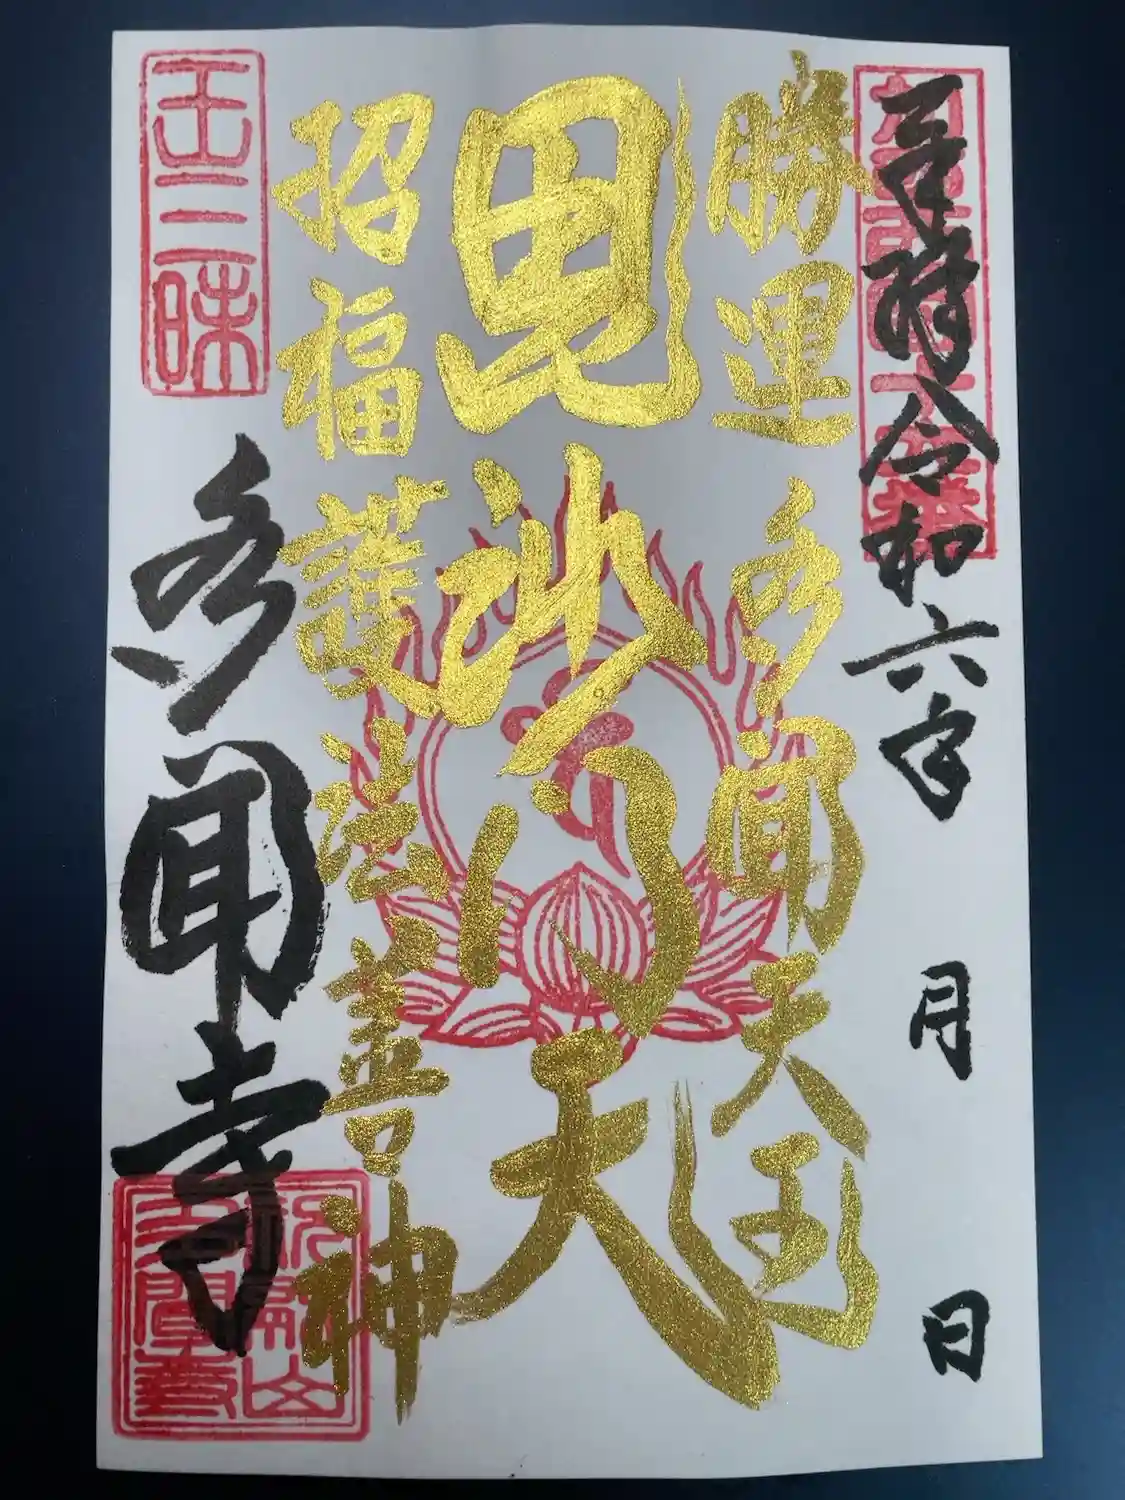 令和六年 月 日
勝運多聞天王
毘沙門天
招福護法善神
王三昧
多聞寺